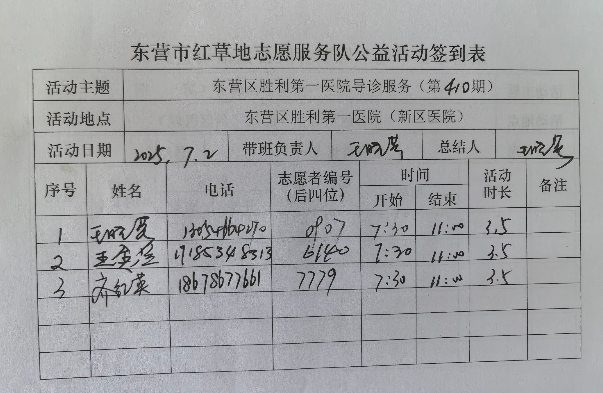 东营市红草地志愿服务队公益活动签到表
活动主题 东营区胜利第一医院导诊服务（第410期）
活动地点 东营区胜利第一医院（新区医院）
活动日期 2025.7.2 带班负责人 总结人
序号 姓名 电话 志愿者编号（后四位） 时间 开始 结束 活动时长 备注
1 0807 7:30 11:00 3.5
2 6140 7:30 11:00 3.5
3 齐红英 18678677661 7779 7:30 11:00 3.5